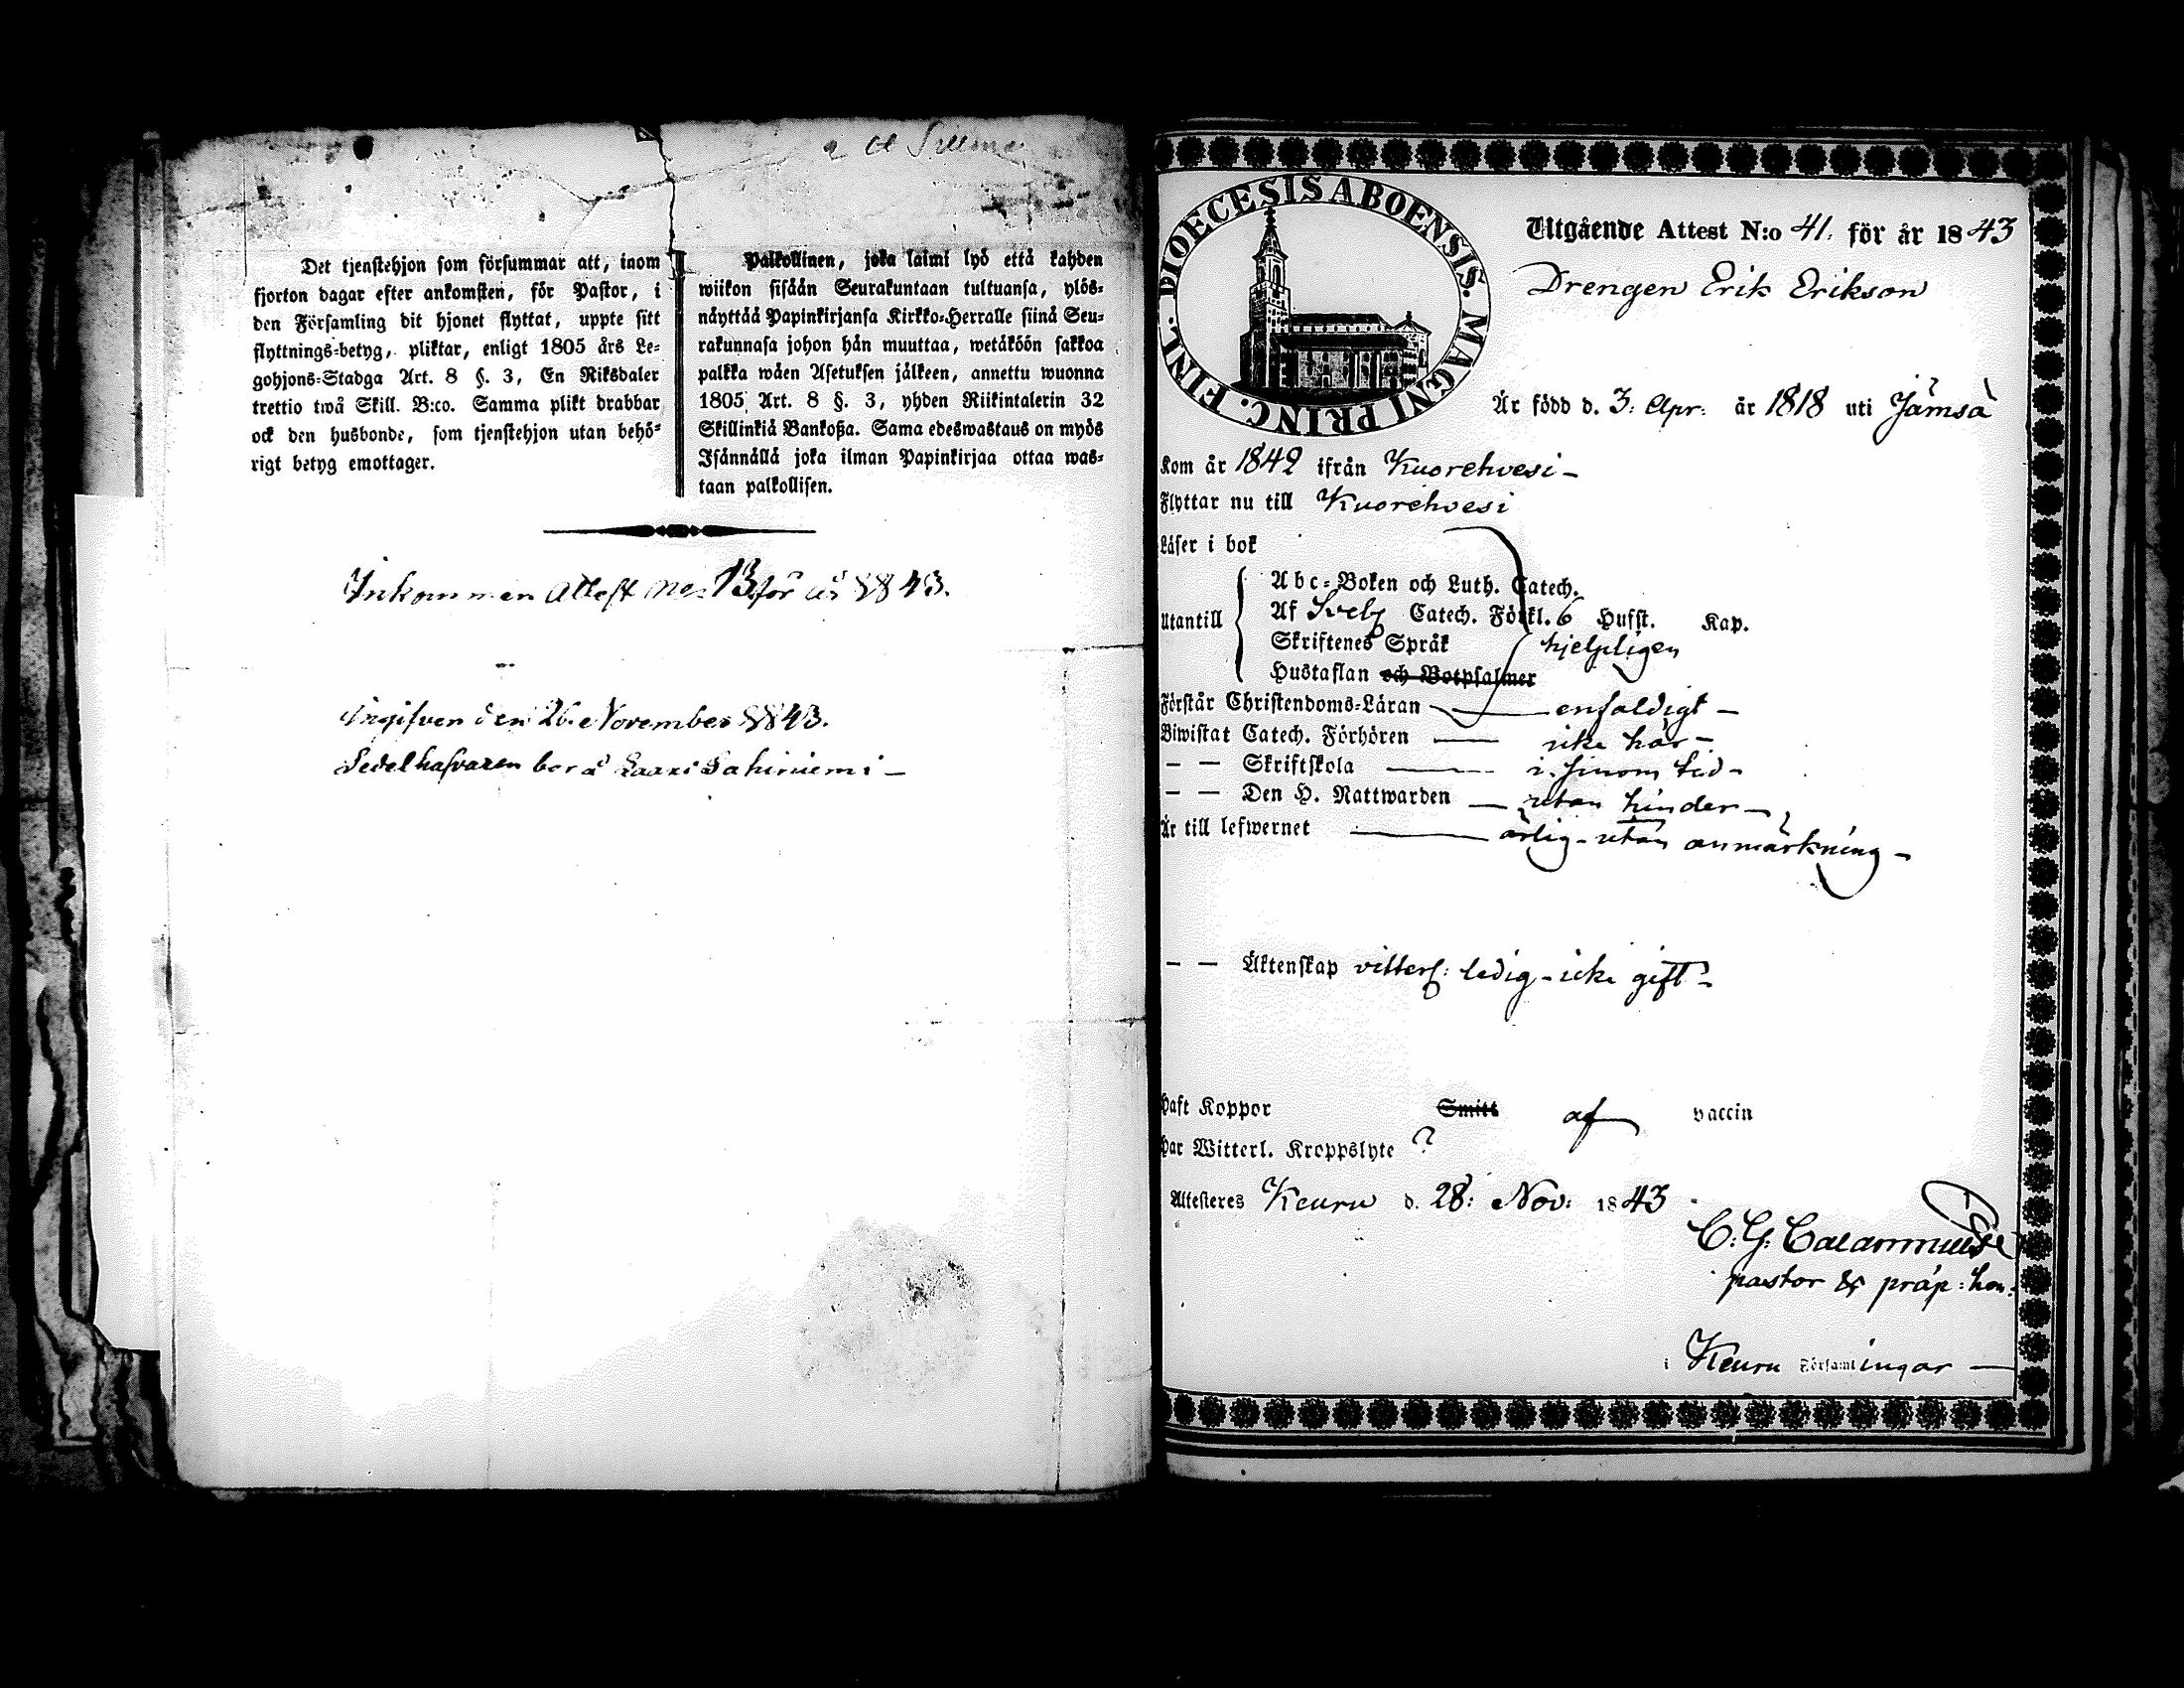 Det tjenstehjon som försummar att, inom
fjorton dagar efter ankomsten, för Pastor, i
den Församling dit hjonet flyttat, uppte sitt
flyttnings-betyg, pliktar, enligt 1805 års Le-
gohjons-Stadga Art. 8 §. 3, En Riksdaler
trettio twå Skill. B:co. Samma plikt drabbar
ock den husbonde, som tjenstehjon utan behö-
rigt betyg emottager.
Palkollinen, joka laimi lyö että kahden
wiikon sisään Seurakuntaan tultuansa, ylös-
näyttää Papinkirjansa Kirkko-Herralle siinä Seu-
rakunnasa johon hän muuttaa, wetäköön sakkoa
palkka wäen Asetuksen jälkeen, annettu wuonna
1805 Art. 8 §. 3, yhden Riikintalerin 32
Skillinkiä Bankoßa. Sama edeswastaus on myös
Isännällä joka ilman Papinkirjaa ottaa was-
taan palkollisen.
Inkommen Attest No: 13 för år 1843.
Ingifven den 26. November 1843.
Sedelhafvaren bor å Laari Sahiniemi –
DIOECESIS ABOENSIS. MAGNI PRINC. FINL.
Utgående Attest N:o 41. för år 1843
Drengen Erik Erikson
Är född d. 3: Apr: år 1818 uti Jämsä
Kom år 1842 ifrån Kuorehvesi –
Flyttar nu till Kuorehvesi
Läser i bok
Abc-Boken och Luth. Catech.
Utantill Af Sveb Catech. Förkl. 6 Hufst. Kap.
Skriftenes Språk hjelpligen
Hustaflan och Botpsalmer
Förstår Christendoms-Läran — enfaldigt –
Biwistat Catech. Förhören — icke här –
— — Skriftskola — i sinom tid –
— — Den H. Nattwarden — utan hinder –
Är till lefwernet — ärlig – utan anmärkning –
— — Äktenskap vitterl: ledig – icke gift –
Haft Koppor Smitt af vaccin
Har Witterl. Kroppslyte ?
Attesteres Keuru d. 28: Nov: 1843
C: G:
pastor & präp: hon:
i Keuru Församlingar —